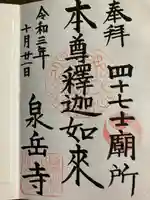 奉拝
四十七士廟所
本尊釋迦如來
令和三年
十月廿一日
泉岳寺